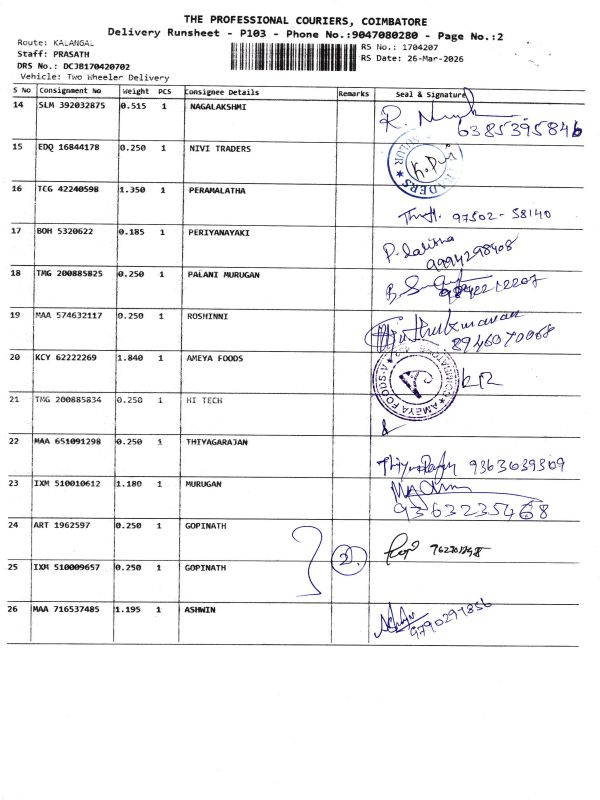 THE PROFESSIONAL COURIERS, COIMBATORE
Delivery Runsheet - P103 - Phone No.:9047080280 - Page No.:2
Route: KALANGAL
Staff: PRASATH
DRS No.: DCJB170420702
Vehicle: Two Wheeler Delivery
RS No.: 1704207
RS Date: 26-Mar-2026
S No Consignment No Weight PCS Consignee Details Remarks Seal & Signature
14 SLM 392032875 0.515 1 NAGALAKSHMI
6385395846
15 EDQ 16844178 0.250 1 NIVI TRADERS
SULUR TRADERS
16 TCG 42240598 1.350 1 PERAMALATHA
97502-58140
17 BOH 5320622 0.185 1 PERIYANAYAKI
P. Lalitha
9994298408
18 TMG 200885825 0.250 1 PALANI MURUGAN
19 MAA 574632117 0.250 1 ROSHINNI
Muthukumaran
8946070068
20 KCY 62222269 1.840 1 AMEYA FOODS
AMEYA FOODS
21 TMG 200885834 0.250 1 HI TECH
22 MAA 651091298 0.250 1 THIYAGARAJAN
9363639309
23 IXM 510010612 1.180 1 MURUGAN
9363235468
24 ART 1962597 0.250 1 GOPINATH
2
25 IXM 510009657 0.250 1 GOPINATH
26 MAA 716537485 1.195 1 ASHWIN